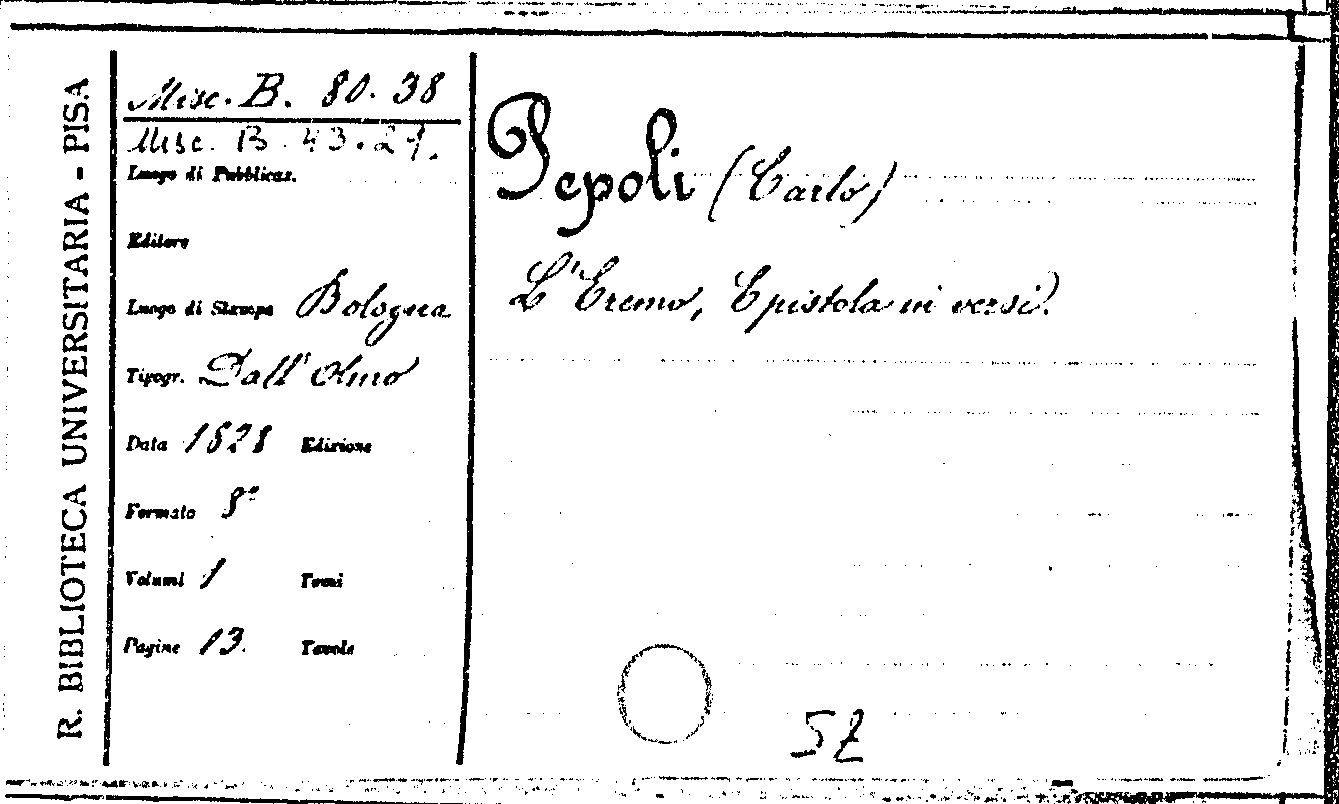 R. BIBLIOTECA UNIVERSITARIA - PISA
Misc. B. 80. 38
Misc. B. 43. 27.
Luogo di Pubblicaz.
Editore
Luogo di Stampa Bologna
Tipogr. Dall' Olmo
Data 1828 Edizione
Formato 8°
Volumi 1 Tomi
Pagine 13. Tavole
Pepoli (Carlo)
L'Eremo, Epistola in versi.
SZ